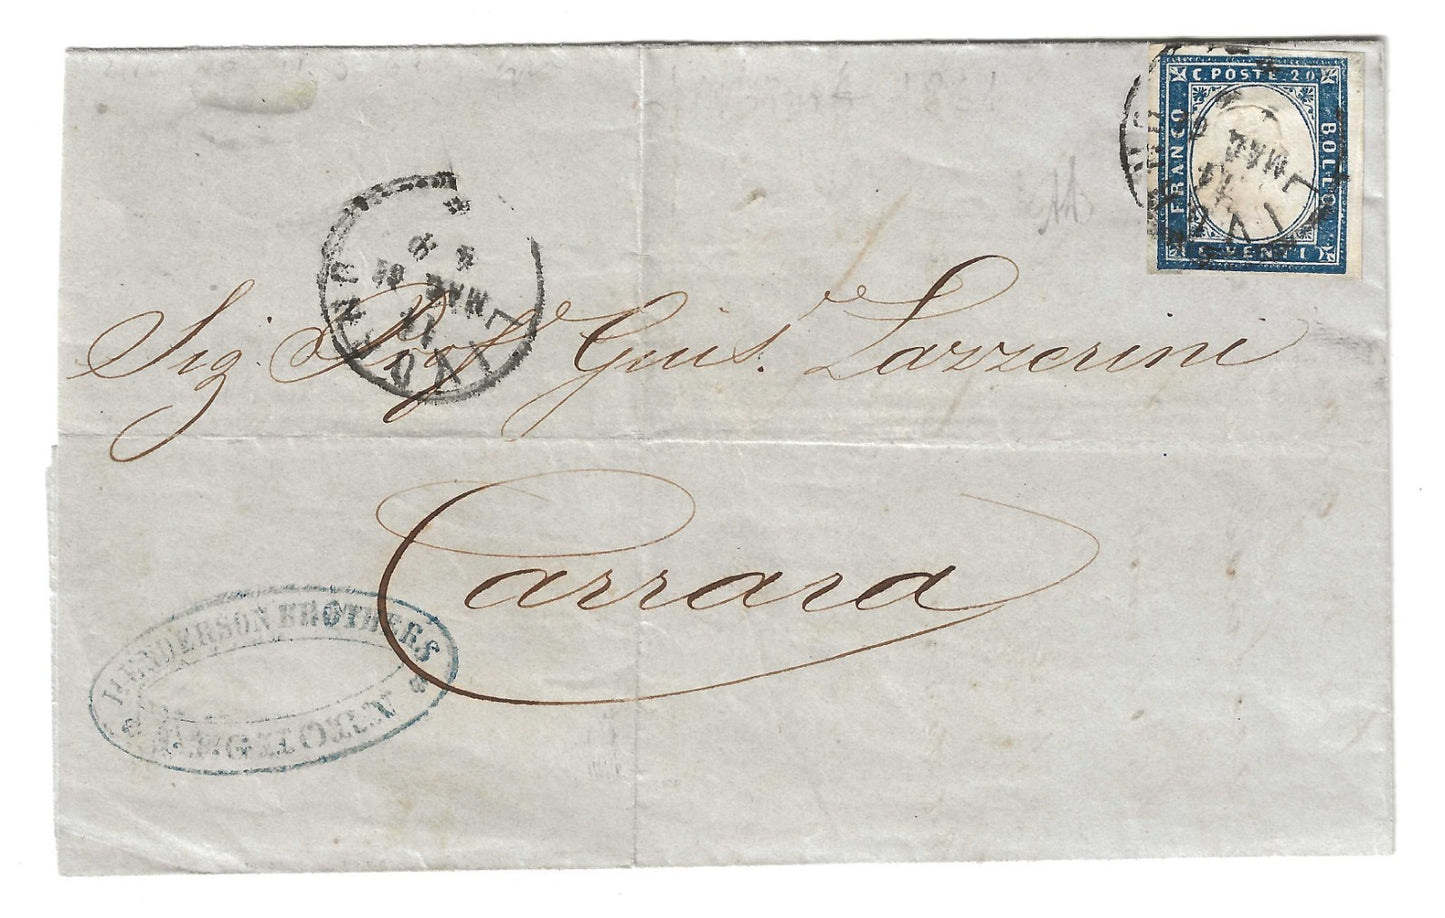 C. POSTE 20
FRANCO
BOLLO
CENTI
LIVORNO
MAG
LIV
MAG
Sig. Prof. Gius. Lazzerini
Carrara
HENDERSON BROTHERS
LEGHORN